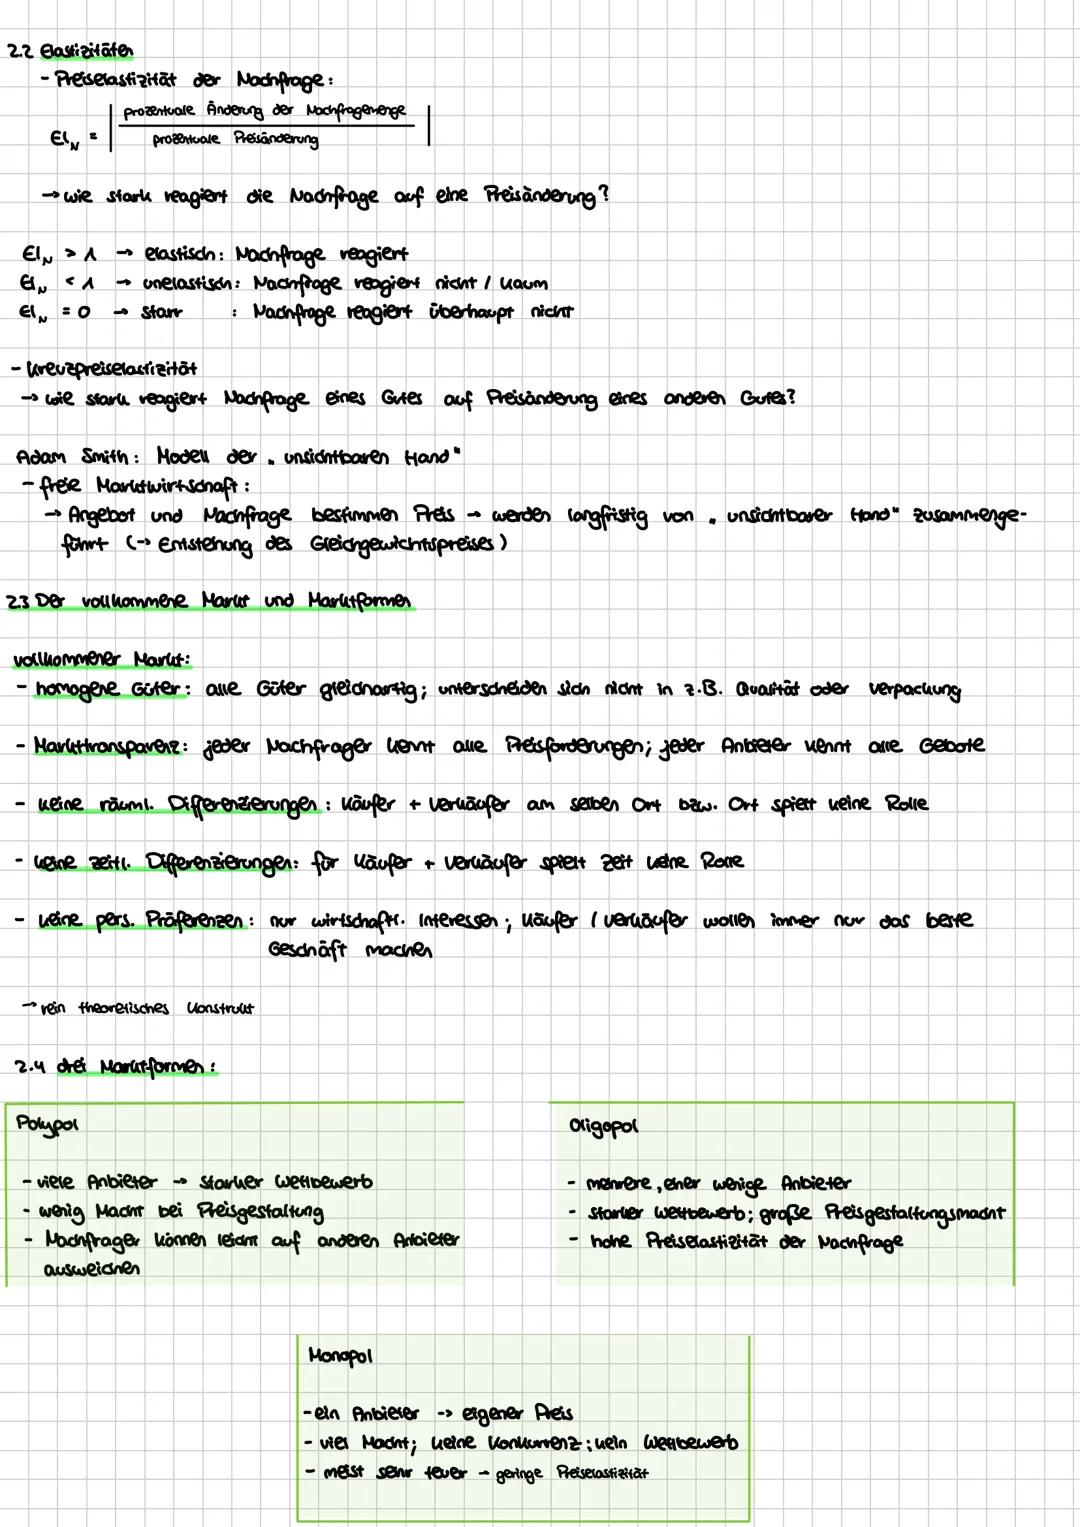 2.2 Elastizitäten
- Preiselastizität der Nachfrage:
El_N = | prozentuale Änderung der Nachfragemenge / prozentuale Preisänderung |
→ wie stark reagiert die Nachfrage auf eine Preisänderung?
El_N > 1 → elastisch: Nachfrage reagiert
El_N < 1 → unelastisch: Nachfrage reagiert nicht / kaum
El_N = 0 → starr : Nachfrage reagiert überhaupt nicht
- Kreuzpreiselastizität
→ wie stark reagiert Nachfrage eines Gutes auf Preisänderung eines anderen Gutes?
Adam Smith: Modell der „unsichtbaren Hand"
- freie Marktwirtschaft:
→ Angebot und Nachfrage bestimmen Preis → werden langfristig von „unsichtbarer Hand" zusammenge-
führt (→ Entstehung des Gleichgewichtspreises)
2.3 Der vollkommene Markt und Marktformen
vollkommener Markt:
- homogene Güter: alle Güter gleichartig; unterscheiden sich nicht in z.B. Qualität oder Verpackung
- Markttransparenz: jeder Nachfrager kennt alle Preisforderungen; jeder Anbieter kennt alle Gebote
- keine räuml. Differenzierungen: Käufer + Verkäufer am selben Ort bzw. Ort spielt keine Rolle
- keine zeitl. Differenzierungen: für Käufer + Verkäufer spielt Zeit keine Rolle
- keine pers. Präferenzen: nur wirtschaftl. Interessen; Käufer / Verkäufer wollen immer nur das beste
Geschäft machen
→ rein theoretisches Konstrukt
2.4 drei Marktformen:
Polypol
- viele Anbieter → starker Wettbewerb
- wenig Macht bei Preisgestaltung
- Nachfrager können leicht auf anderen Anbieter
ausweichen
Oligopol
- mehrere, eher wenige Anbieter
- starker Wettbewerb; große Preisgestaltungsmacht
- hohe Preiselastizität der Nachfrage
Monopol
- ein Anbieter -> eigener Preis
- viel Macht; keine Konkurrenz; kein Wettbewerb
- meist sehr teuer → geringe Preiselastizität